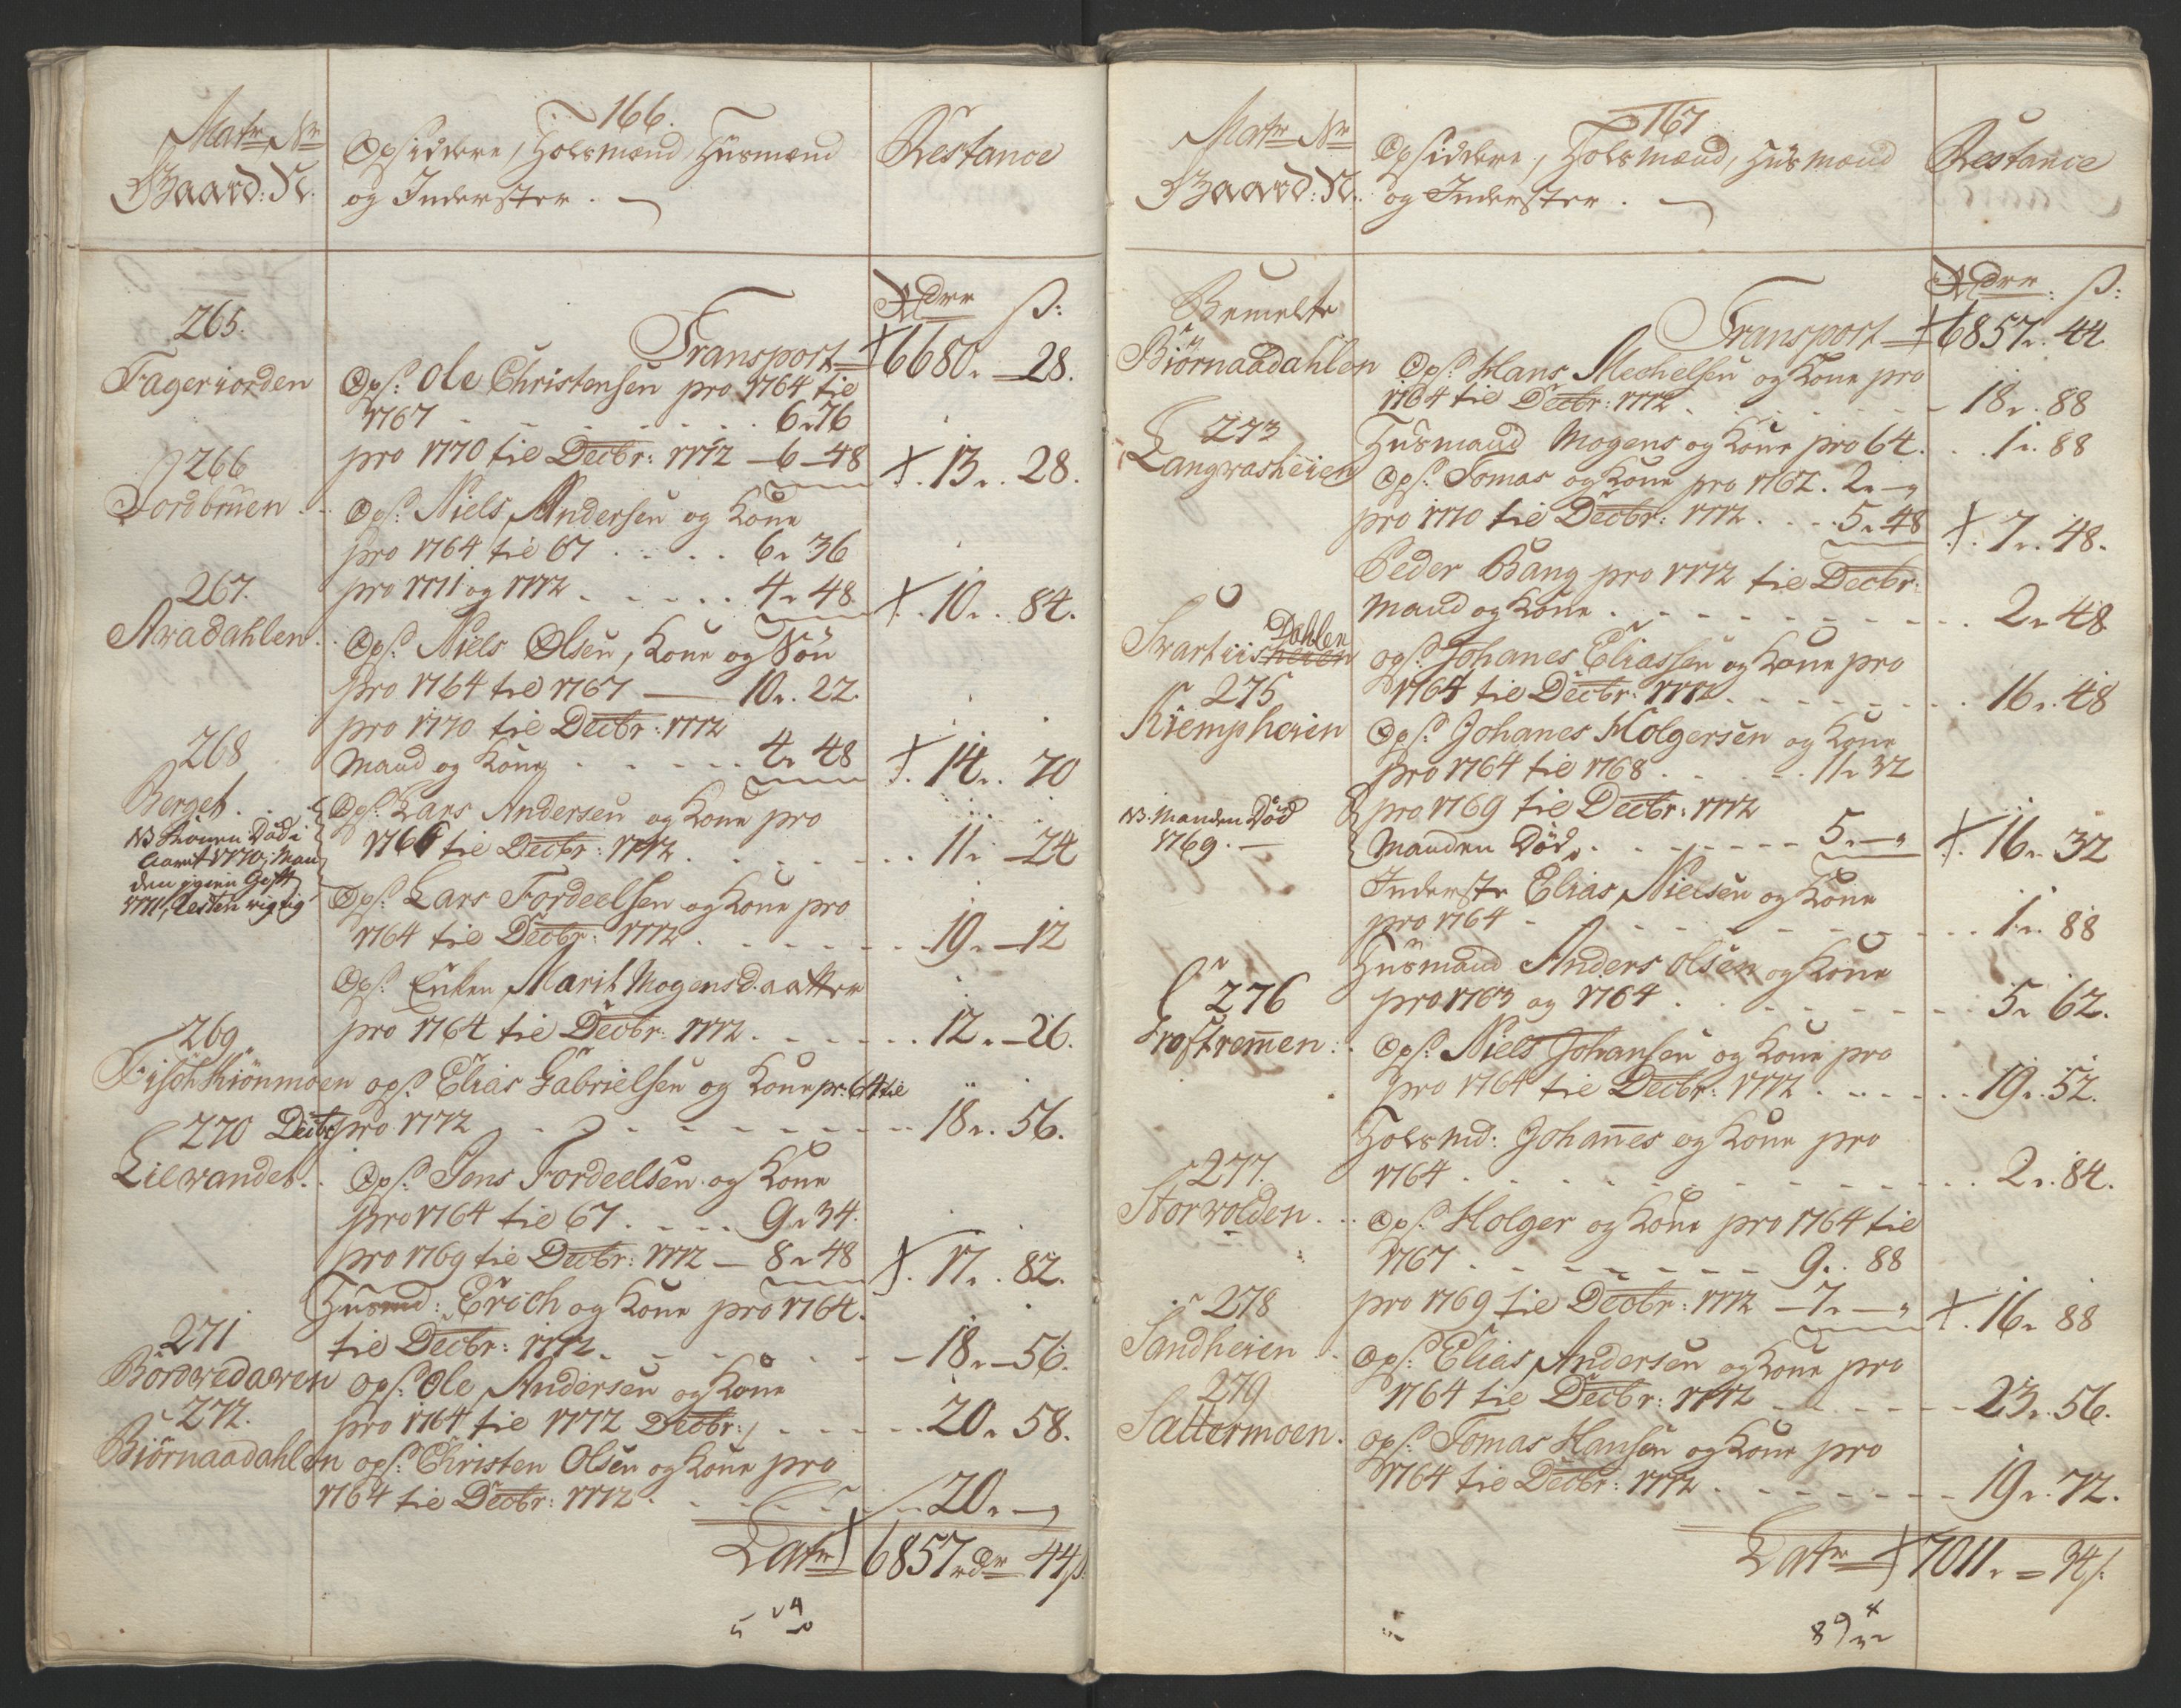 166.
Matr Nr
Gaard: N.
Opsiddere, Holsmænd, Husmænd
og Inderster.
Restance
Rdrr ß:
265.
Transport 6680. 28.
Fageriorden
Ops: Ole Christensen pro 1764 til
1767 . . . 6. 76
pro 1770 til Decbr: 1772 6 48 13. 28.
266
Jordbruen
Ops: Niels Andersen og Kone
pro 1764 til 67 . . . 6. 36
pro 1771 og 1772 . . . 4. 48 10. 84.
267.
Avadahlen
Ops: Niels Olsen, Kone og Søn
pro 1764 til 1767 10. 22.
pro 1770 til Decbr: 1772
Mand og Kone . . . 4. 48 14. 70
268
Berget
Ops: Lars Andersen og Kone pro
1766 til Decbr: 1772 . . . 11. 24
NB Konen Død i
Aaret 1770, Man
den igien Gift
1771, Resten rigtig
Ops: Lars Fordeelsen og Kone pro
1764 til Decbr: 1772 . . . 19. 12
Ops: Enken Marit Mogensdaatter
pro 1764 til Decbr: 1772 . . . 12. 26.
269
Fisch Kiønmoen ops: Elias Gabrielsen og Kone pr: 64 til
Decbr pro 1772 . . . 18. 56.
270
Lilvandet
Ops: Jens Fordeelsen og Kone
pro 1764 til 67 . . . 9. 34.
pro 1769 til Decbr: 1772 8. 48 17. 82.
Husmd: Erich og Kone pro 1764.
til Decbr: 1772 . . . 18. 56.
271
Bordvedaven ops: Ole Andersen og Kone
pro 1764 til 1772 Decbr: . . . 20. 58.
272.
Biørnaadahlen ops: Christen Olsen og Kone pro
1764 til Decbr: 1772 . . . 20.
Latr 6857 rdr 44 ß.
167
Matr Nr
Gaard: N.
Opsiddere, Holsmænd, Husmænd
og Inderster.
Restance
Rdrr: ß:
Transport 6857. 44
Bemelte
Biørnaadahlen
Ops: Hans Mechelsen og Kone pro
1764 til Decbr: 1772 . . . 18. 88
273
Langvasheien
Husmand Mogens og Kone pro 64. . . 1. 88
Ops: Tomas og Kone pro 1767. 2.
pro 1770 til Decbr: 1772 . . . 5. 48 7. 48.
Peder Bang pro 1772 til Decbr:
Mand og Kone . . . 2. 48
Dahlen
Svartiisheien
ops: Johanes Eliassen og Kone pro
1765 til Decbr: 1772 . . . 16. 48
275
Kiempheien
Ops: Johanes Holgersen og Kone
pro 1764 til 1768 . . . 11. 32
NB. Manden Død
1769.
pro 1769 til Decbr: 1772
Manden Død, . . . 5. 16. 32
Inderste Elias Nielsen og Kone
pro 1764 . . . 1. 88
Husmand Anders Olsen og Kone
pro 1763 og 1764 . . . 5. 62.
276
Troftremen:
Ops: Niels Johansen og Kone pro
pro 1764 til Decbr: 1772 . . . 19. 52.
Holsmd: Johannes og Kone pro
1764 . . . 2. 84.
277.
Storvolden
Ops: Holger og Kone pro 1764 til
1767 . . . 9. 88
pro 1769 til Decbr: 1772 7. 16. 88
278
Sandheien
Ops: Elias Andersen og Kone pro
1764 til Decbr: 1772 . . . 23. 56.
279
Saltermoen.
Ops: Tomas Hansen og Kone pro
1764 til Decbr: 1772 . . . 19. 72.
Latr 7011. 34 ß.